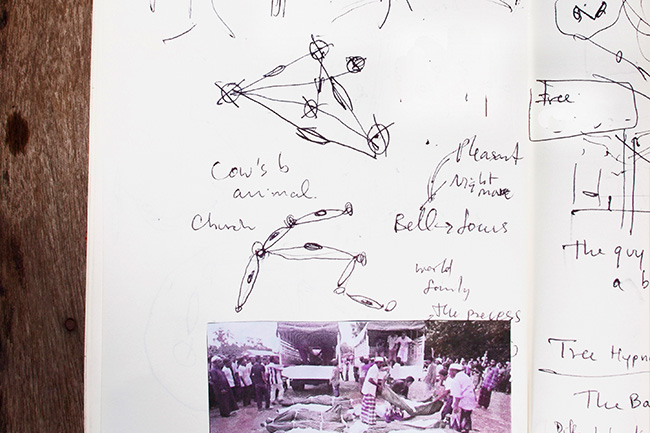 Free
Cow's b
animal.
Pleasant
Night
mare
Church
Bell → focus
world
family
the process
The guy
a b
Tree Hypn
The Ba